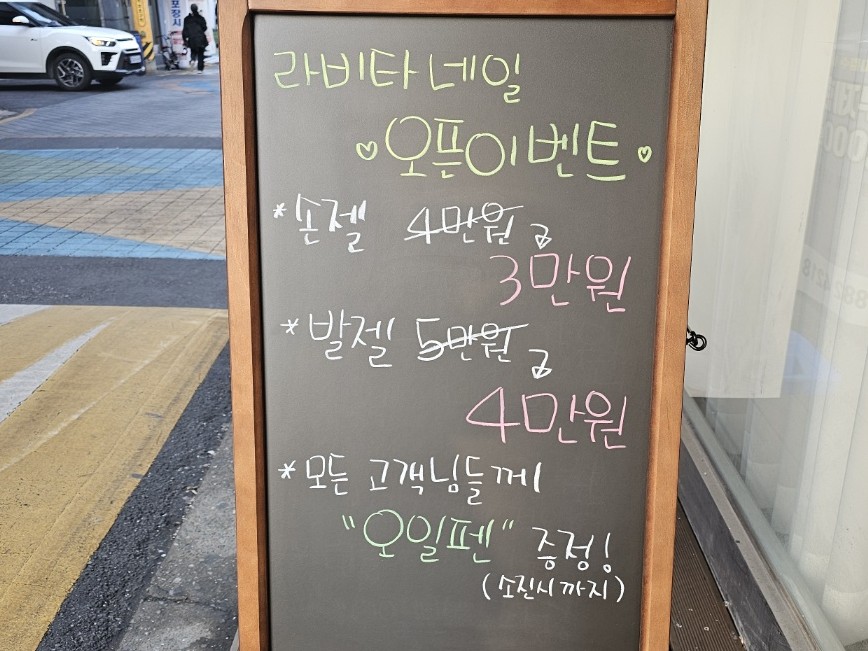 라비타 네일
♡오픈이벤트♡
*손젤 4만원
3만원
*발젤 5만원
4만원
*모든 고객님들께
"오일펜" 증정!
(소진시까지)
포장시